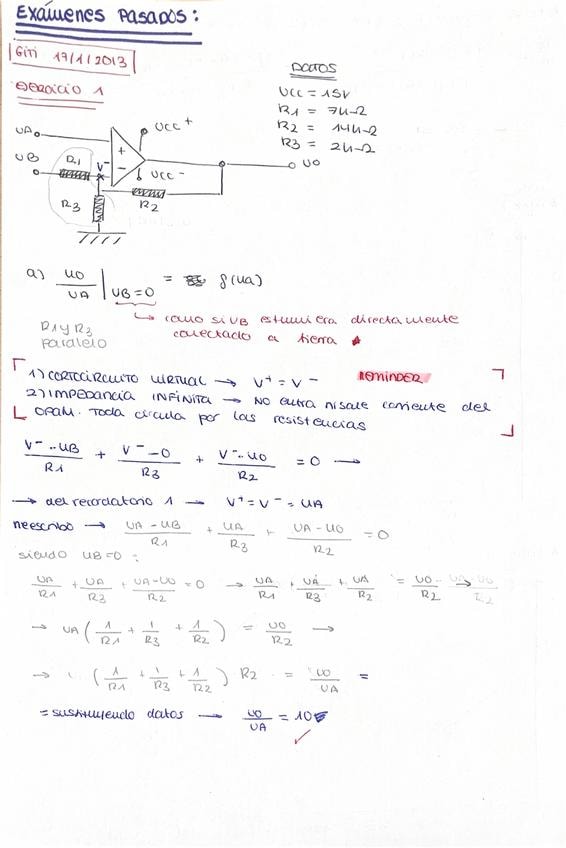 EXÁMENES PASADOS:
GITI 17/1/2013
EJERCICIO 1
DATOS
UCC = 15V
R1 = 7kΩ
R2 = 14kΩ
R3 = 2kΩ
UA
UCC+
+
UB
R1
V-
-
UCC-
UO
R3
R2
a) UO/UA | UB=0 = f(UA)
como si UB estuviera directamente
conectado a tierra
R1 y R3
paralelo
1) CORTOCIRCUITO VIRTUAL → V+ = V- REMINDER
2) IMPEDANCIA INFINITA → NO entra ni sale corriente del
OPAM. Toda circula por las resistencias
(V- - UB)/R1 + (V- - 0)/R3 + (V- - UO)/R2 = 0 →
→ del recordatorio 1 → V+ = V- = UA
Reescribo → (UA - UB)/R1 + UA/R3 + (UA - UO)/R2 = 0
siendo UB=0:
UA/R1 + UA/R3 + (UA - UO)/R2 = 0 → UA/R1 + UA/R3 + UA/R2 = UO/R2 →
→ UA (1/R1 + 1/R3 + 1/R2) = UO/R2 →
→ (1/R1 + 1/R3 + 1/R2) R2 = UO/UA =
= sustituyendo datos → UO/UA = 10